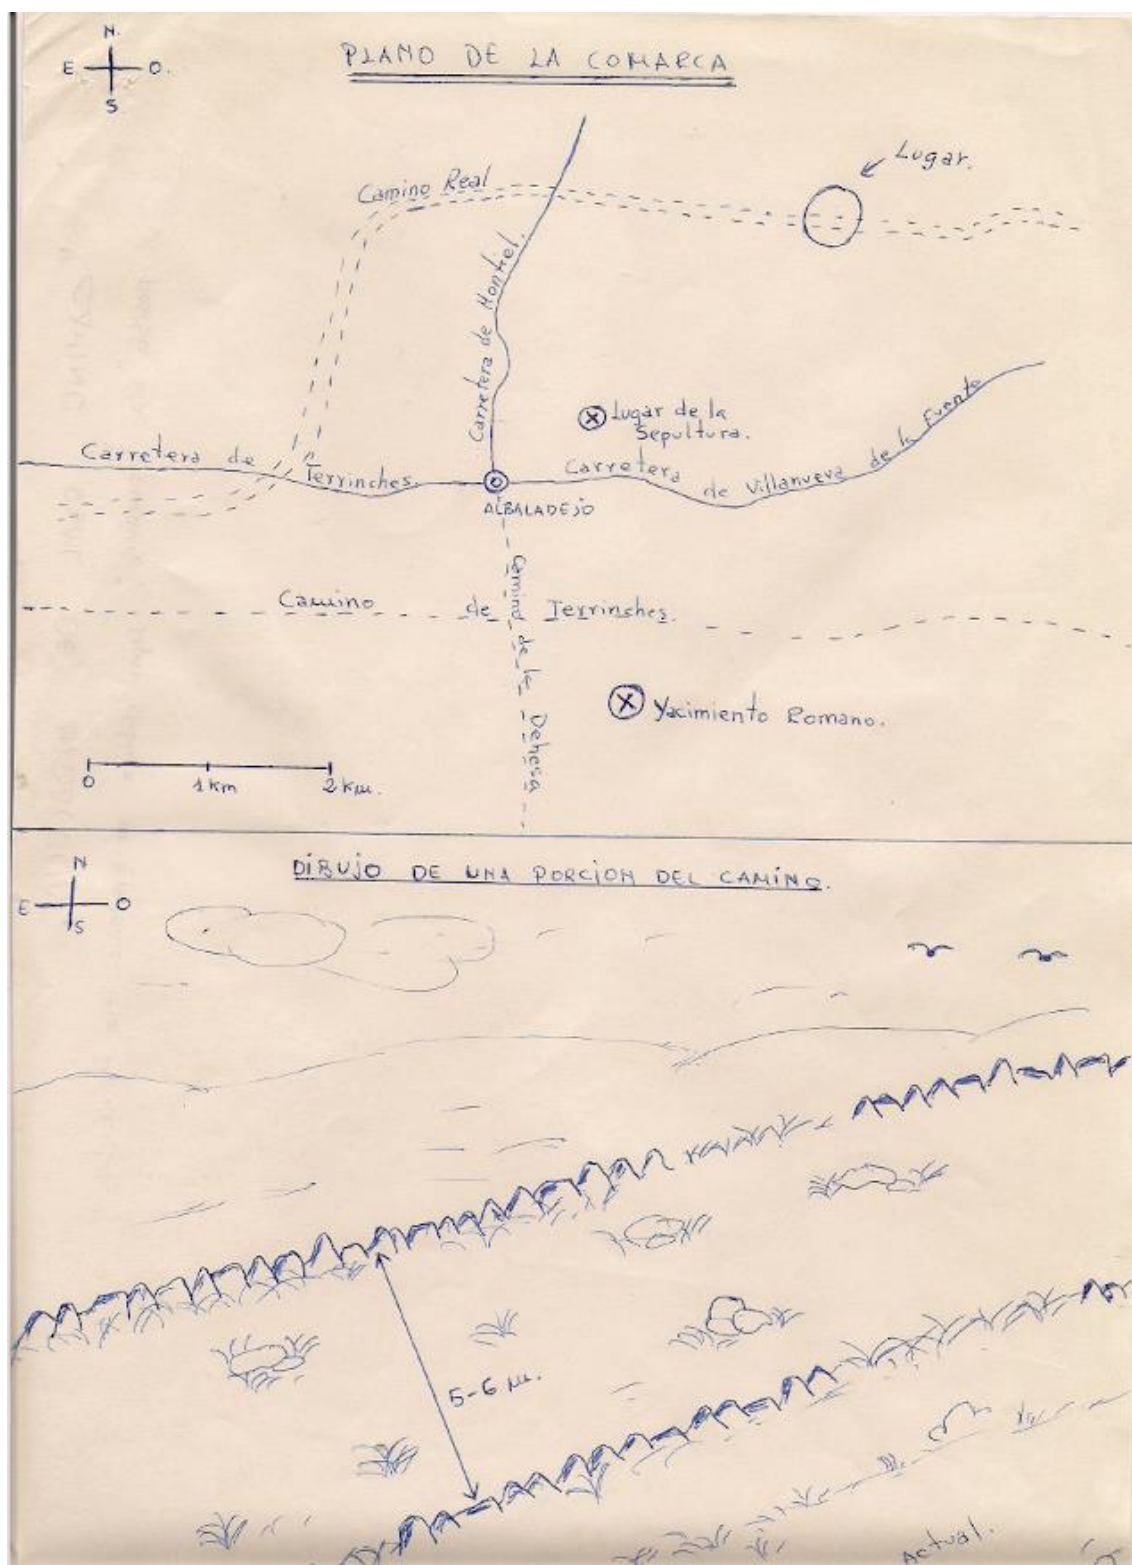 N.
E O.
S
PLANO DE LA COMARCA
Lugar.
Camino Real
Carretera de Montiel.
Lugar de la
Sepultura.
Carretera de Terrinches.
Carretera de Villanueva de la Fuente
ALBALADEJO
Camino de la Dehesa
Camino de Terrinches.
Yacimiento Romano.
0 1km 2km.
N
E O
S
DIBUJO DE UNA PORCION DEL CAMINO.
5-6 m.
Actual.